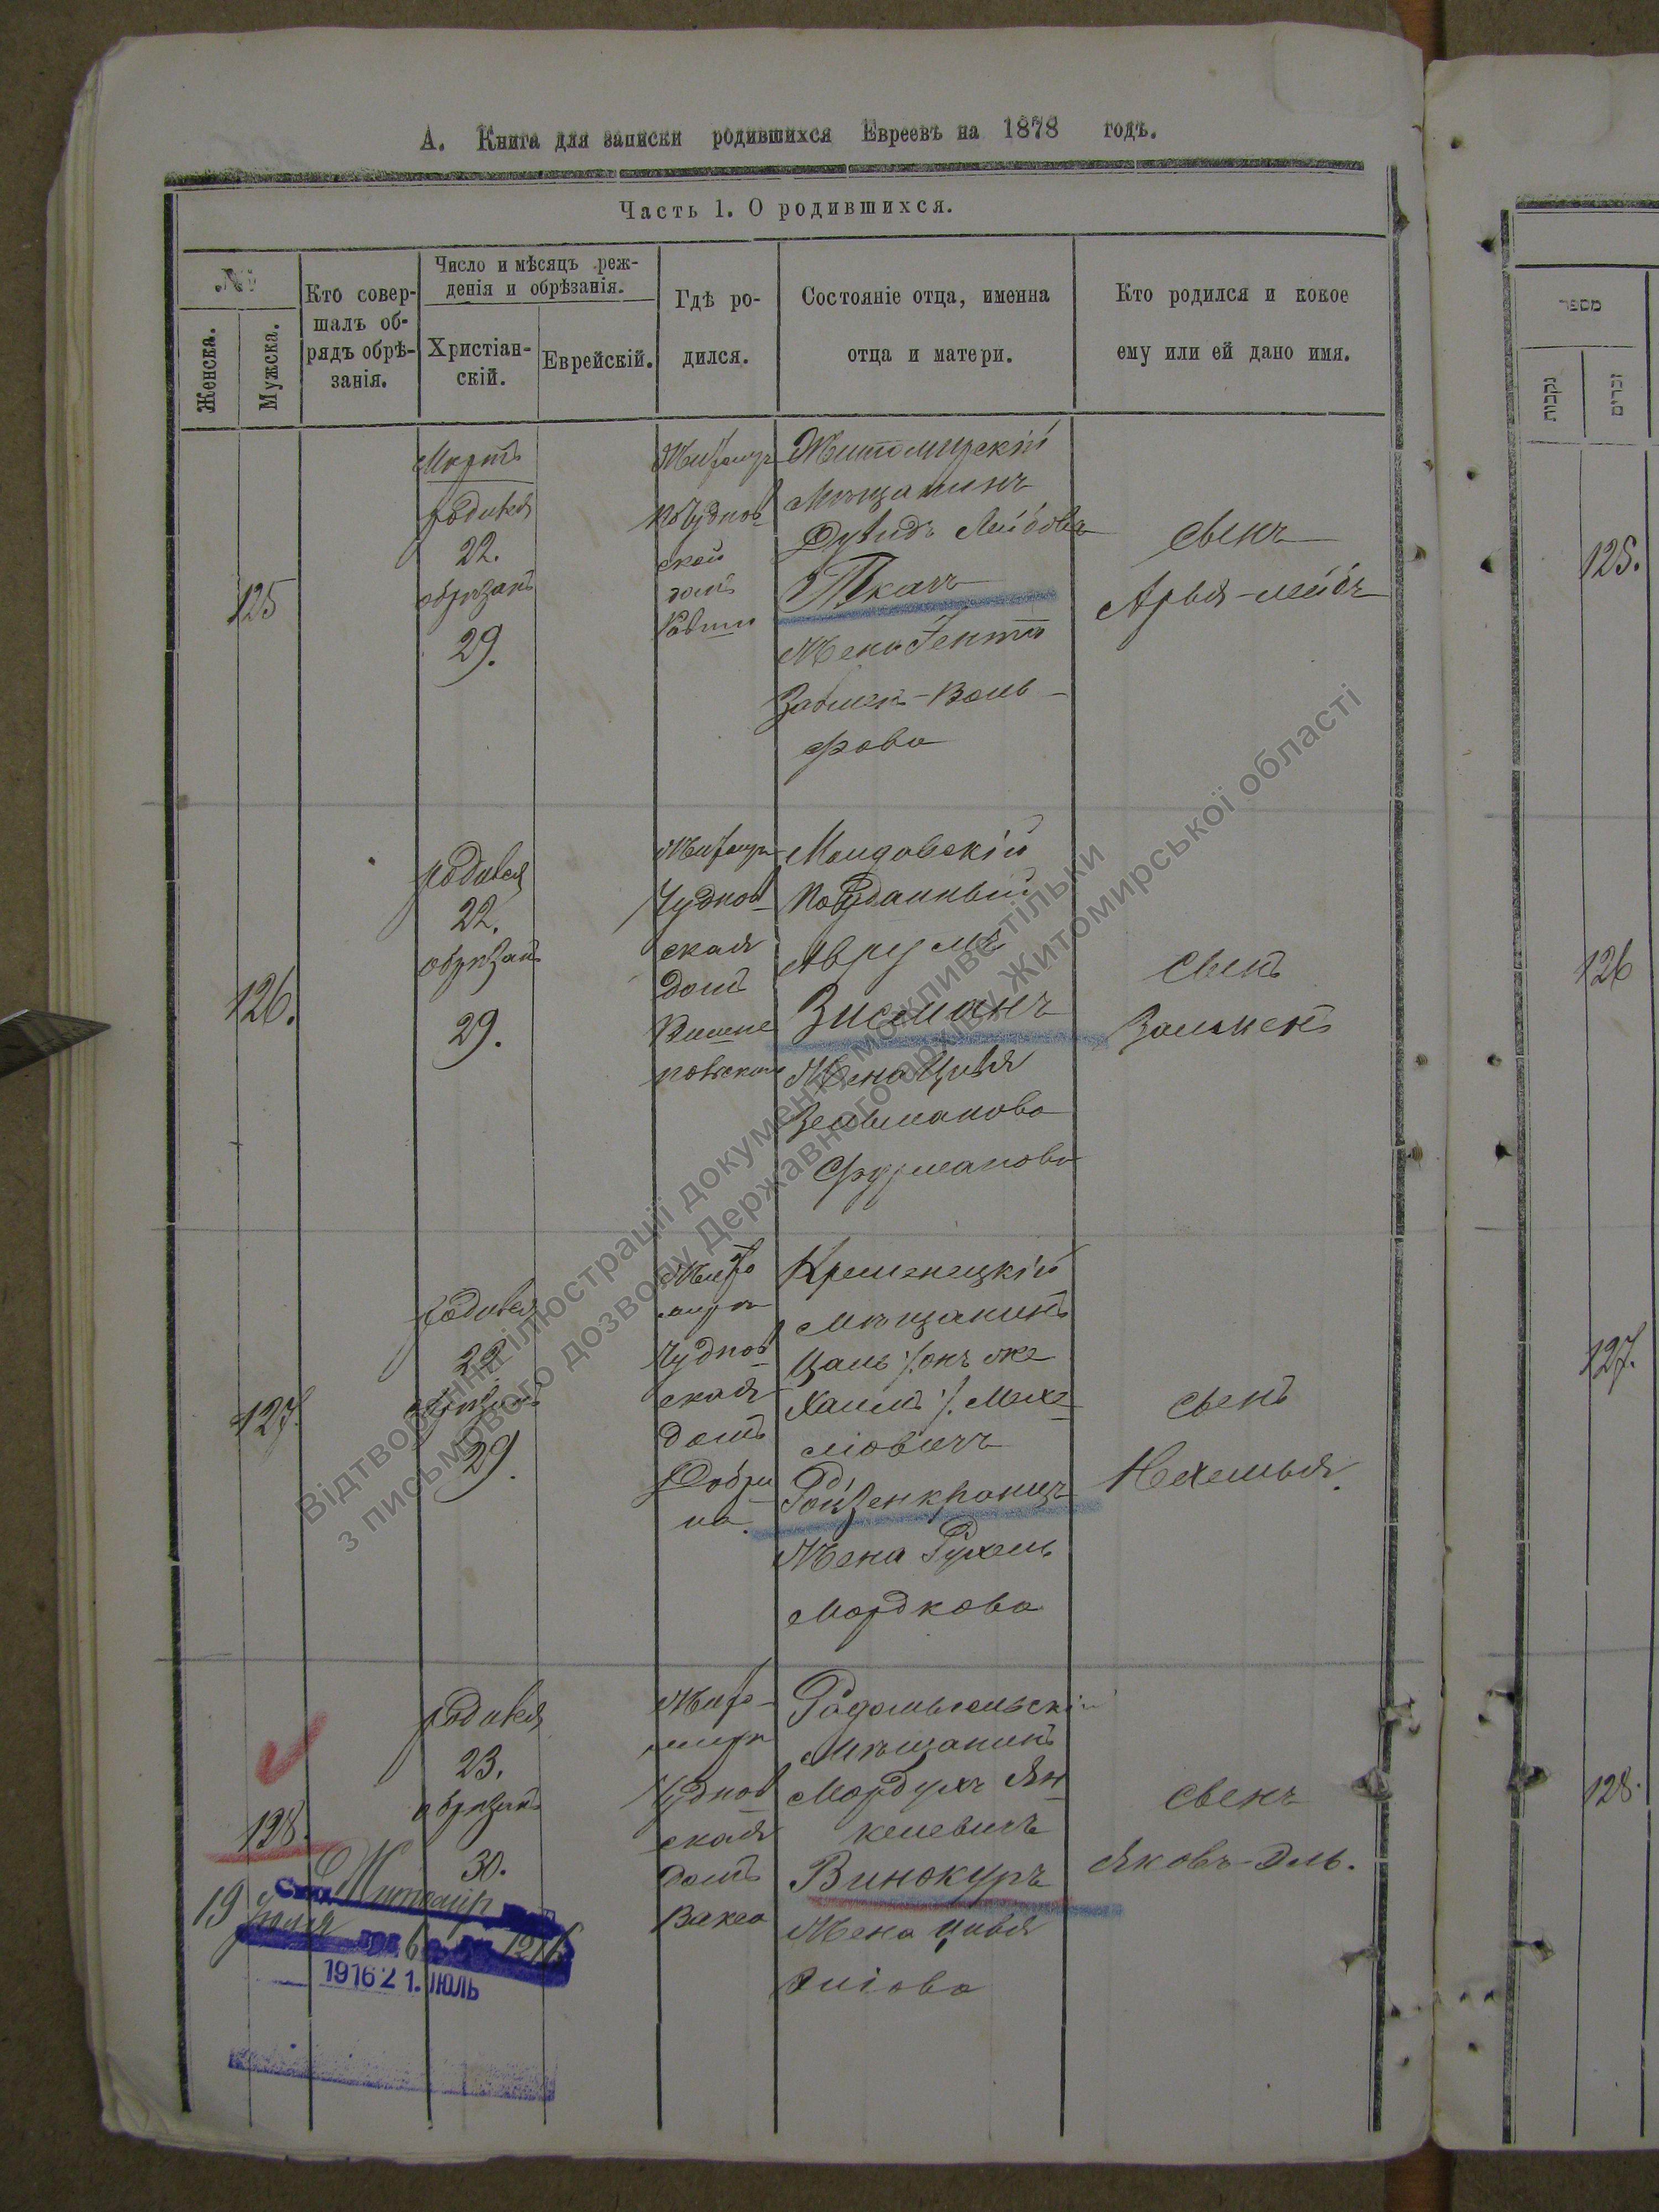 А. Книга для записки родившихся Евреевъ на 1878 годъ.
Часть 1. О родившихся.
№
Женска.
Мужска.
Кто совер-
шалъ об-
рядъ обрѣ-
занія.
Число и мѣсяцъ реж-
денія и обрѣзанія.
Христіан-
скій.
Еврейскій.
Гдѣ ро-
дился.
Состояніе отца, именна
отца и матери.
Кто родился и кокое
ему или ей дано имя.
125
Мартъ
родился
22.
обрѣзанъ
29.
Чуднов
ской
домъ
Житомирскій
Мѣщанинъ
Дувидъ Лейбовъ
Ткачъ
Жена Гентя
Зайлик-Воль-
фова
сынъ
Арья-лейбъ
126.
родился
22.
обрѣзанъ
29.
Житомиръ
Чуднов
ская
домъ
Подданный
Аврумъ
Зисманъ
Жена Цивя
Зельманова
Фурманова
сынъ
Зальменъ
127.
родился
22
обрѣзанъ
29.
Жито
миръ
Чуднов
ская
домъ
Добри
на.
Кременецкій
Мѣщанинъ
Цаль /. онъ же
Хаимъ /. Мехе
ліовичъ
Ройзенкранцъ
Жена Рухель
Мордкова
сынъ
Нехемья.
128.
родился
23.
обрѣзанъ
30.
Жито-
миръ
Чуднов
ская
домъ
Вакса
Радомысльскій
Мѣщанинъ
Мордухъ Ян
келевичъ
Винокуръ
Жена Цивя
Эліова
сынъ
Яковъ-Эль.
19
Житомир
Іюля
1916
1916 21. ІЮЛЬ
מספר
נקבות
זכרים
125.
126
127.
128.
Відтворення ілюстрації документу можливе тільки
з письмового дозволу Державного архіву Житомирської області